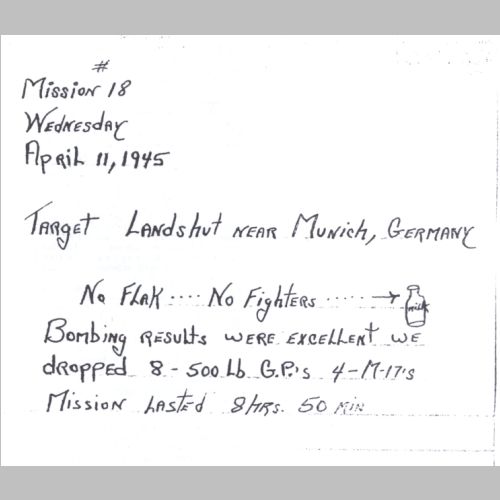 #
Mission 18
Wednesday
April 11, 1945
Target Landshut near Munich, Germany
No Flak .... No Fighters ..... → milk
Bombing results were excellent we
dropped 8 - 500 Lb G.P.'s 4 - M-17's
Mission lasted 8 Hrs. 50 min